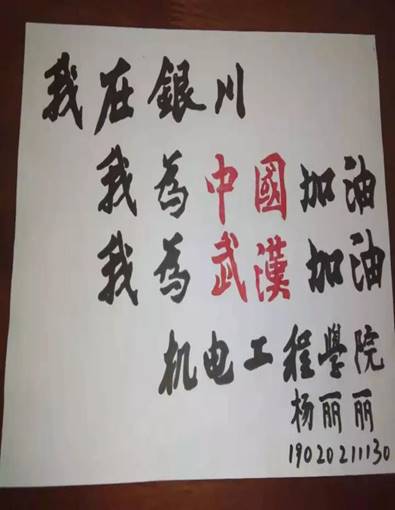 我在銀川
我為中國加油
我為武漢加油
机电工程學院
杨丽丽
19020211130